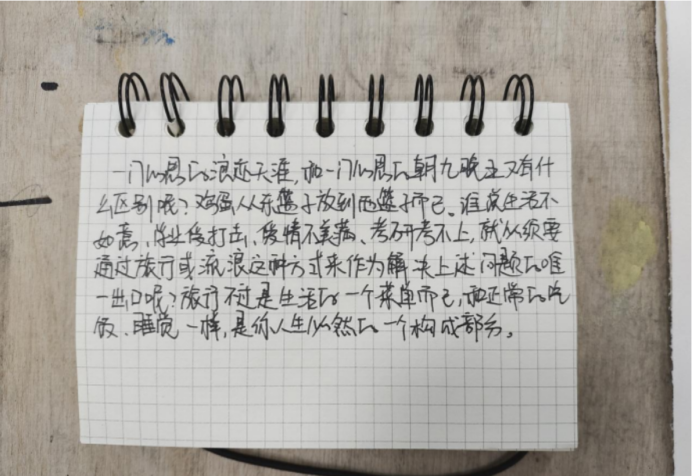 一门心思的浪迹天涯，和一门心思的朝九晚五又有什
么区别呢？鸡蛋从东篮子放到西篮子而已。谁说生活不
如意、作业受打击、爱情不美满、考研考不上，就必须要
通过旅行或流浪这种方式来作为解决上述问题的唯
一出口呢？旅行不过是生活的一个菜单而已，和正常的吃
饭、睡觉一样，是你人生必然的一个构成部分。